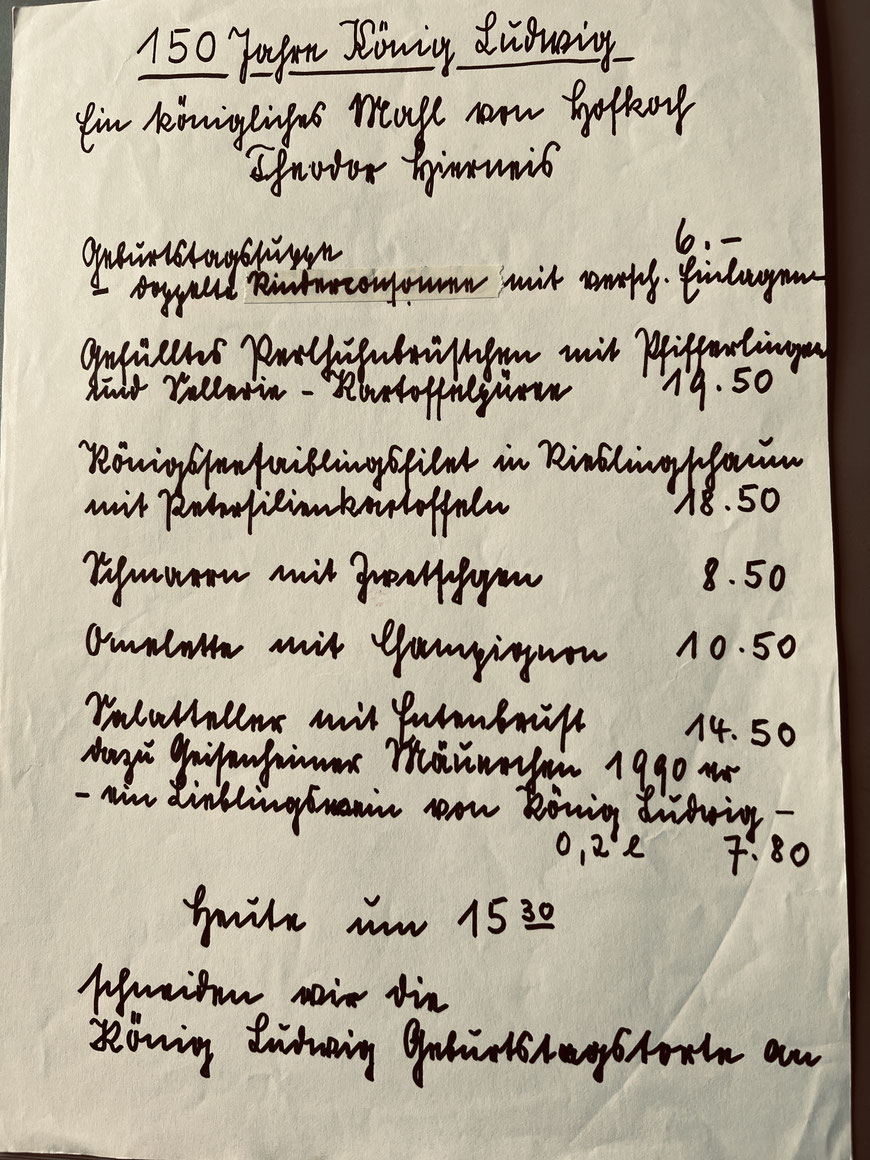 150 Jahre König Ludwig
Ein königliches Mahl von Hofkoch
Theodor Hierneis
Geburtstagssuppe 6.-
- doppelte Rinderconsomee mit versch. Einlagen-
Gefülltes Perlhuhnbrüstchen mit Pfifferlingen
und Sellerie - Kartoffelpüree 19.50
Königsseesaiblingsfilet in Rieslingschaum
mit Petersilienkartoffeln 18.50
Schmarrn mit Zwetschgen 8.50
Omelette mit Champignon 10.50
Salatteller mit Entenbrust 14.50
dazu Geisenheimer Mäuerchen 1990 er
- ein Lieblingswein von König Ludwig -
0,2 l 7.80
Heute um 15 30
schneiden wir die
König Ludwig Geburtstagstorte an